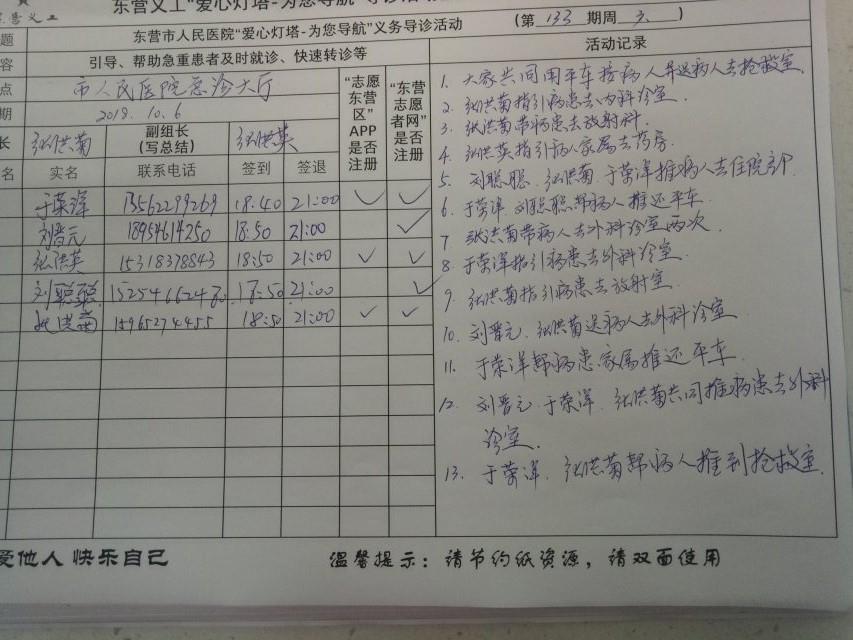 东营义工"爱心灯塔-为您导航"
东营义工
(第 133 期周 六 )
题 东营市人民医院"爱心灯塔-为您导航"义务导诊活动
活动记录
容 引导、帮助急重患者及时就诊、快速转诊等
点 市人民医院急诊大厅
期 2019.10.6
"志愿东营区"APP是否注册
"东营志愿者网"是否注册
长 张洪菊 副组长(写总结) 张洪英
名 实名 联系电话 签到 签退
于荣洋 13562299269 18:40 21:00 ✓ ✓
刘晋元 18954614250 18:50 21:00 ✓
张洪英 15318378843 18:50 21:00 ✓ ✓
刘聪聪 18:50 21:00 ✓
张洪菊 15965274455 18:50 21:00 ✓ ✓
1. 大家共同用平车接病人并送病人去抢救室.
2. 张洪菊指引病患去内科诊室.
3. 张洪菊带病患去放射科.
4. 张洪英指引病人家属去药房
5. 刘聪聪.张洪菊.于荣洋推病人去住院部
6. 于荣洋.刘聪聪帮病人推还平车.
7 张洪菊带病人去外科诊室两次.
8. 于荣洋指引病患去外科诊室.
9. 张洪菊指引病患去放射室.
10. 刘晋元.张洪菊送病人去外科诊室
11. 于荣洋帮病患家属推还平车.
12. 刘晋元.于荣洋.张洪菊共同推病患去外科
诊室.
13. 于荣洋.张洪菊帮病人推到抢救室.
爱他人 快乐自己
温馨提示：请节约纸资源，请双面使用